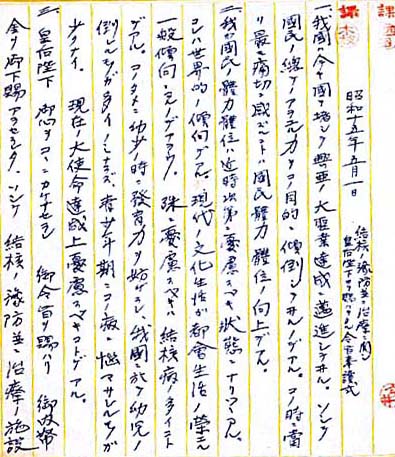 昭和十五年五月一日
結核ノ豫防並治療ニ關シ
皇后陛下ヨリ賜ハリタル令旨奉讀式
一、我國ハ今ヤ國ヲ擧ゲテ興亜ノ大聖業達成ニ邁進シテヰル。ソシテ
國民ノ總ベテアラユル力ヲコノ目的ニ傾倒シテヰルノデアル。コノ時ニ當
リ最モ痛切ニ感ズルコトハ國民體力體位ノ向上デアル。
二、我ガ國民ノ體力體位ハ近時次第ニ憂慮スベキ状態ニナリツツアル。
コレハ世界的ノ傾向デアル。現代ノ文化生活ガ都會生活ノ榮エル
一般傾向ニ
デアラウ。殊ニ憂慮スベキハ結核病ノ多イコト
デアル。コノタメニ幼少ノ時ニ發育力ヲ妨ゲラレ、我國ニ於テ幼児ノ
倒レルモノガ多イノミナラズ、青少年期ニコノ病ニ惱マサレルモノガ
少クナイ。現在ノ大使命達成上憂慮スベキコトデアル。
三、皇后陛下御心ヲコヽニカケサセラレ御令旨ヲ賜ハリ御内帑
金ヲ御下賜アラセラレタ。ソシテ結核ノ豫防並ニ治療ノ施設